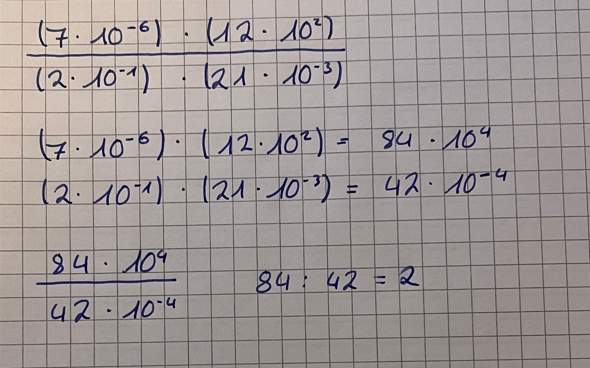 (7 · 10⁻⁶) · (12 · 10²)
(2 · 10⁻¹) · (21 · 10⁻³)
(7 · 10⁻⁶) · (12 · 10²) = 84 · 10⁴
(2 · 10⁻¹) · (21 · 10⁻³) = 42 · 10⁻⁴
84 · 10⁴
42 · 10⁻⁴
84 : 42 = 2